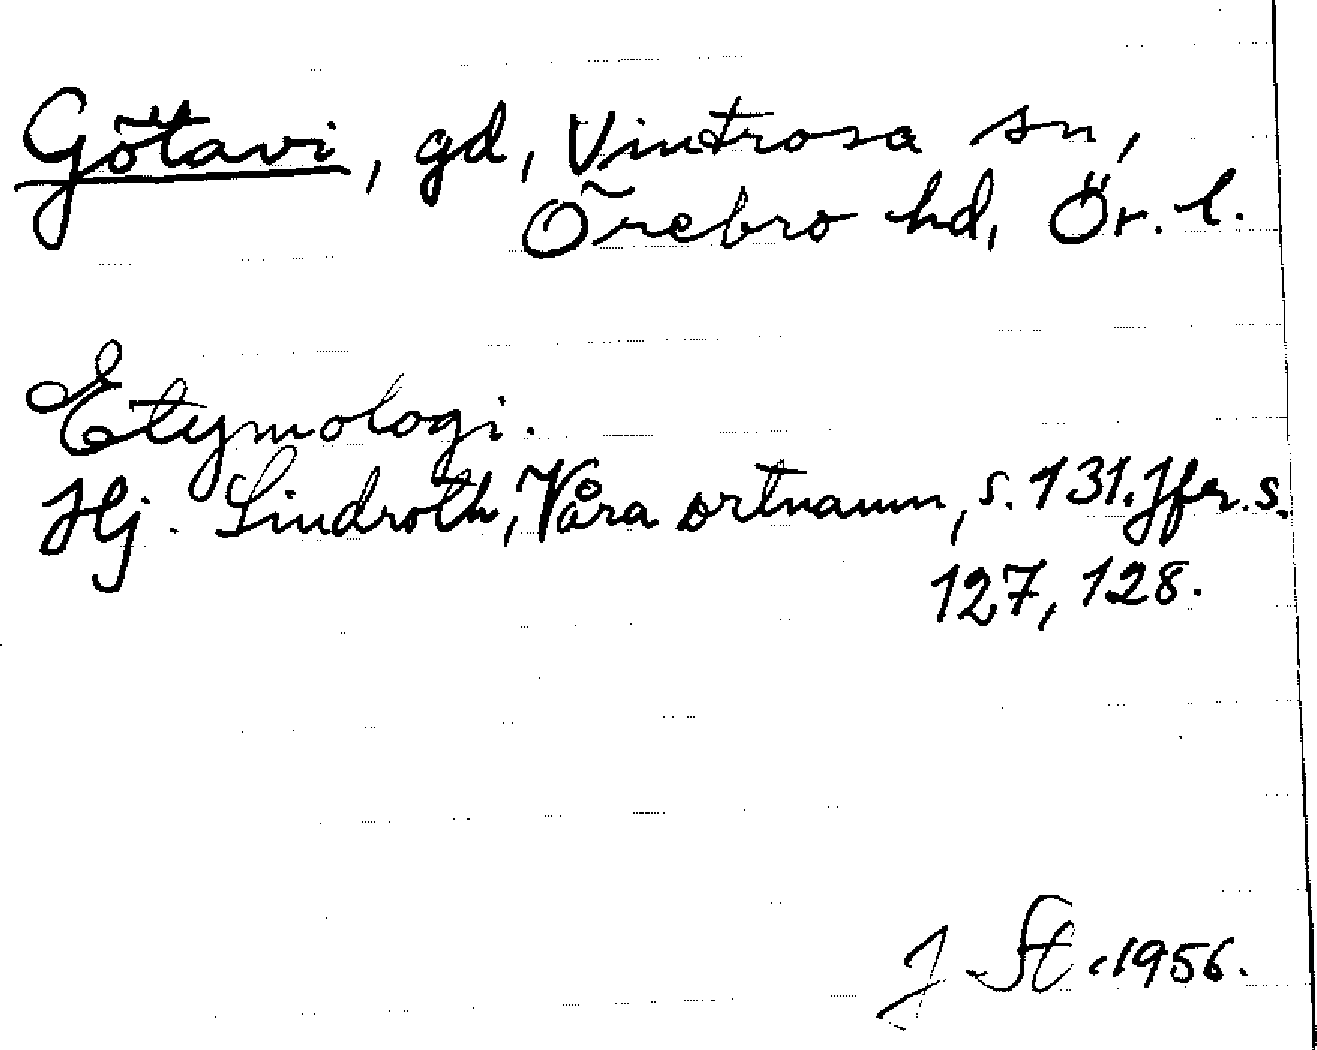 Götavi, gd, Vintrosa sn,
Örebro hd, Ör. l.
Etymologi.
Hj. Lindroth, Våra ortnamn, s. 131. Jfr. s.
127, 128.
J. St. 1956.